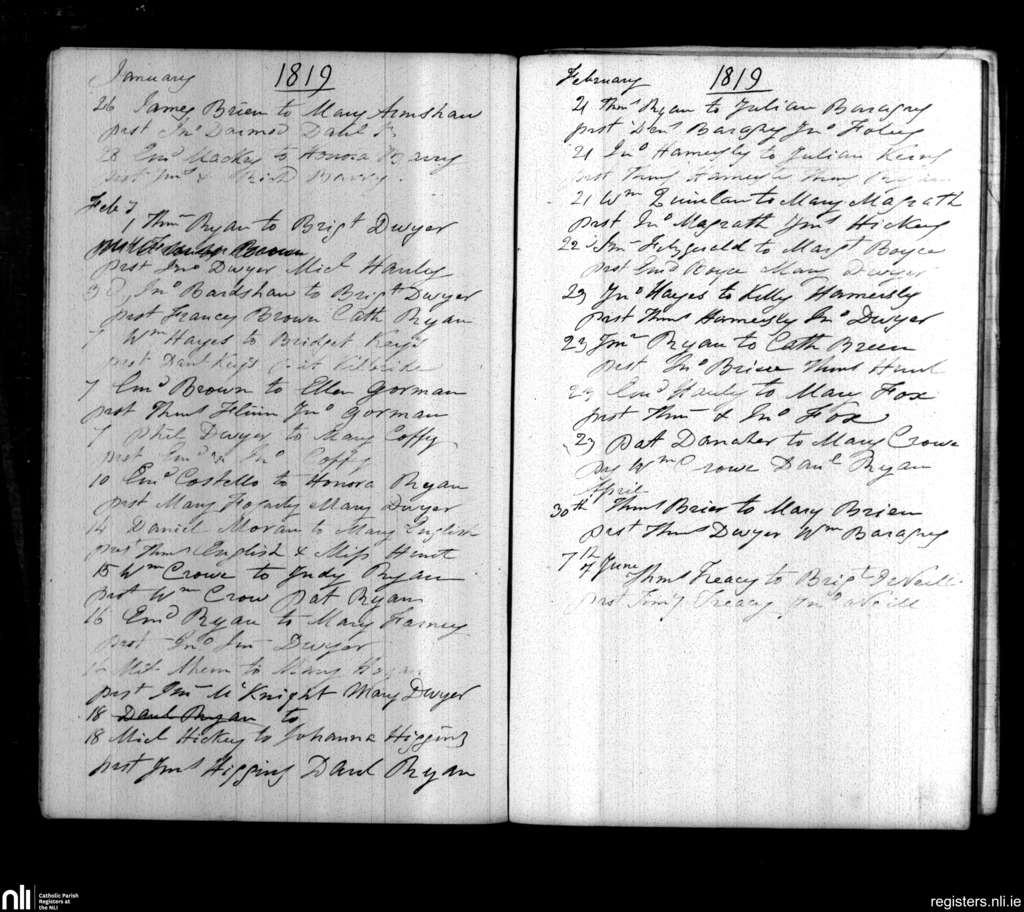 January 1819
26 James Brien to Mary Armshaw
prst Jno Darmod Danl
28 Emd Mackey to Honora Barry
prst Jms & Barry
Feby
1 Thms Ryan to Brigt Dwyer
prst Jno Dwyer Micl Hanly
3 Jno Bardshaw to Brigt Dwyer
prst Frances Brown Cath Ryan
Wm Hayes to Bridget Keays
prst Danl Keays
7 Emd Brown to Ellen Gorman
prst Thms Flinn Jno Gorman
7 Phil Dwyer to Mary Coffy
prst Emd & Jno Coffy
10 Emd Costello to Honora Ryan
prst Mary Fogarty Mary Dwyer
14 Daniel Moran to Mary English
prst Thms English & Miss Hunt
15 Wm Crowe to Judy Ryan
prst Wm Crow Pat Ryan
16 Emd Ryan to Mary Farney
prst Jno Jms Dwyer
to Mary Hogan
prst Jms McKnight Mary Dwyer
18 Danl Ryan to
18 Micl Hickey to Johanna Higgins
prst Jms Higgins Danl Ryan
February 1819
21 Thms Ryan to Julian Baragry
prst Denl Baragry Jno Foley
21 Jno Hamersly to Julian
prst Thms Hamersly Thms Ryan
21 Wm Quinlan to Mary Magrath
prst Jno Magrath Jms Hickey
22 Jms Fitzgerald to Margt Royce
prst Emd Royce Mary Dwyer
23 Jno Hayes to Kitty Hamersly
prst Thms Hamersly Jno Dwyer
23 Jms Ryan to Cath Breen
prst Jno Briee Thms Hunt
23 Emd Hanly to Mary Fox
prst Thms & Jno Fox
23 Pat Danaher to Mary Crowe
prs Wm Crowe Danl Ryan
April
30th Thms Brier to Mary Brien
prst Thms Dwyer Wm Baragry
7th June
Thms Treacy to Brigt ONeill
prst Timy Treacy Jms oNeill
nli
Catholic Parish
Registers at
the NLI
registers.nli.ie